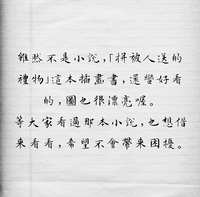 雖然不是小說，「將被人送的
禮物」這本插畫書，還蠻好看
的，圖也很漂亮喔。
等大家看過那本小說，也想借
來看看，希望不會帶來困擾。